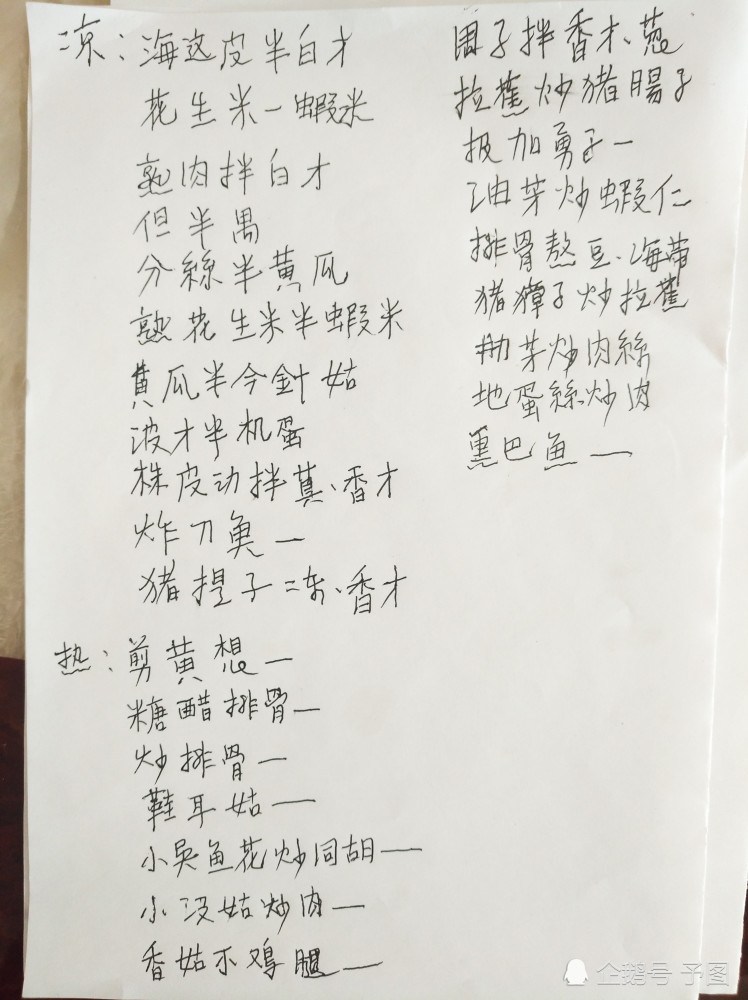 凉：海这皮半白才
花生米一虾米
熟肉拌白才
但半禺
分絲半黄瓜
熟花生米半蝦米
黄瓜半今針姑
波才半机蛋
株皮动拌蒖、香才
炸刀鱼一
猪提子冻、香才
热：剪黄想一
糖醋排骨一
炒排骨一
鞋耳姑一
小吴鱼花炒同胡一
小没姑炒肉一
香姑不鸡腿一
周子拌香才、葱
拉蕉炒猪腸子
扳加勇子一
油芽炒蝦仁
排骨熬豆、海带
猪獐子炒拉蕉
芽炒肉絲
地蛋絲炒肉
熏巴鱼一
企鹅号 予图